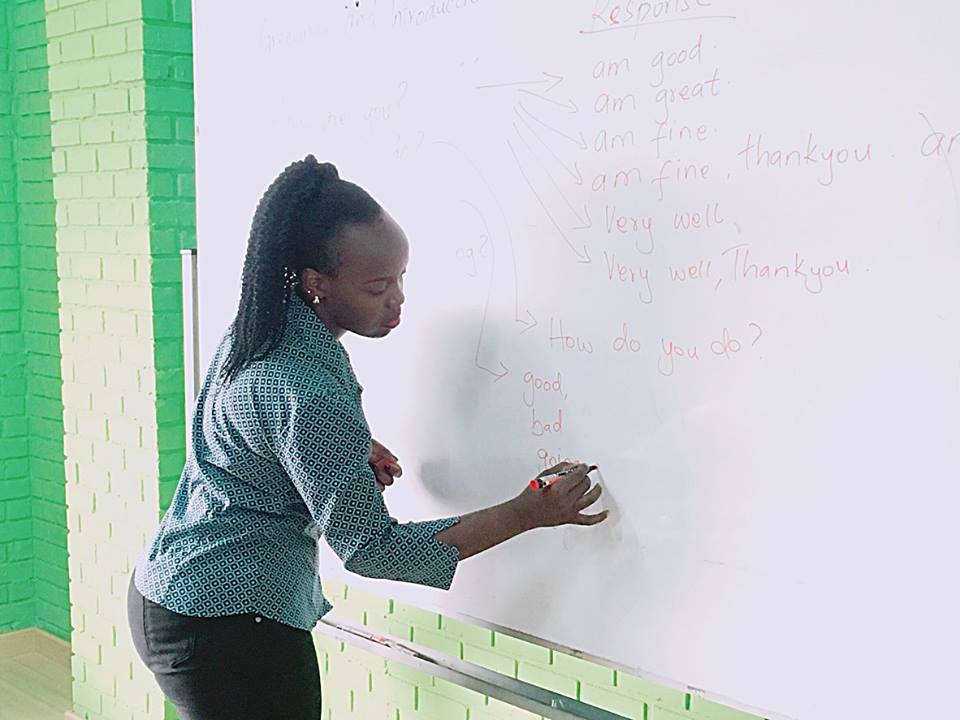 Greeting and Introduction
Response
am good.
are you?
am great.
do?
am fine.
am fine, thankyou.
Very well,
ng?
Very well, Thankyou.
How do you do?
good,
bad
going